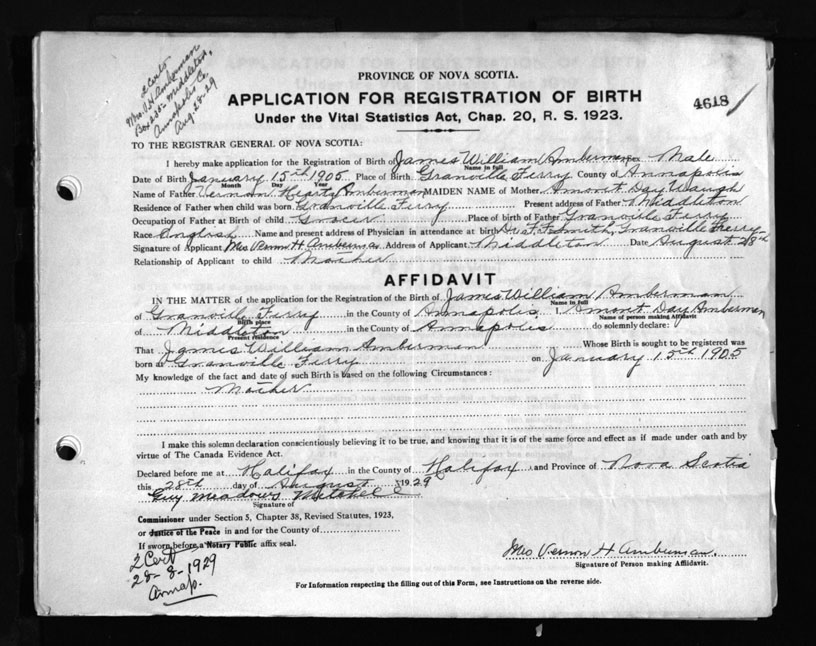 2 Certs
Mrs V. H. Amberman
Box 235 Middleton,
Annapolis Co.
Aug 28-29
PROVINCE OF NOVA SCOTIA.
APPLICATION FOR REGISTRATION OF BIRTH
Under the Vital Statistics Act, Chap. 20, R. S. 1923.
4618
TO THE REGISTRAR GENERAL OF NOVA SCOTIA:
I hereby make application for the Registration of Birth of James William Amberman Sex Male
Name in full
Date of Birth January 15th 1905 Place of Birth Granville Ferry County of Annapolis
Month Day Year
Name of Father Vernon Hearty Amberman MAIDEN NAME of Mother Amont Day Waugh
Residence of Father when child was born Granville Ferry Present address of Father Middleton
Occupation of Father at Birth of child Grocer Place of birth of Father Granville Ferry
Race English Name and present address of Physician in attendance at birth Dr F. F. Smith, Granville Ferry
Signature of Applicant Mrs Vernon H Amberman Address of Applicant Middleton Date August 28th
Relationship of Applicant to child Mother
AFFIDAVIT
IN THE MATTER of the application for the Registration of the Birth of James William Amberman
Name in full
of Granville Ferry in the County of Annapolis I, Amont Day Amberman
Birth place Name of person making Affidavit
of Middleton in the County of Annapolis do solemnly declare:
Present residence
That James William Amberman Whose Birth is sought to be registered was
born at Granville Ferry on January 15th 1905
My knowledge of the fact and date of such Birth is based on the following Circumstances:
Mother
I make this solemn declaration conscientiously believing it to be true, and knowing that it is of the same force and effect as if made under oath and by
virtue of The Canada Evidence Act.
Declared before me at Halifax in the County of Halifax and Province of Nova Scotia
this 28th day of August 1929
Guy Meadows Mitchell
Signature of
Commissioner under Section 5, Chapter 38, Revised Statutes, 1923,
or Justice of the Peace in and for the County of
If sworn before a Notary Public affix seal.
Mrs Vernon H Amberman.
Signature of Person making Affidavit.
2 Cert
28-8-1929
Annap.
For Information respecting the filling out of this Form, see Instructions on the reverse side.